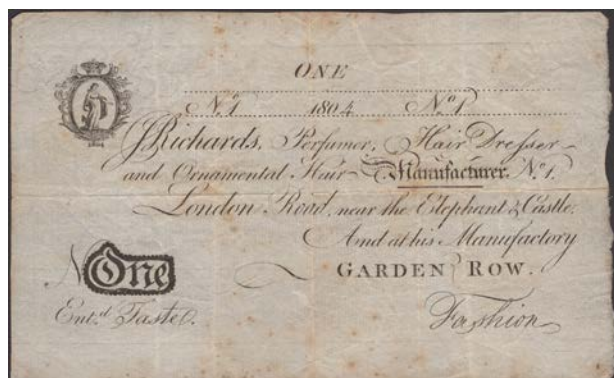 ONE
No. 1 1804 No. 1
J Richards, Perfumer, Hair Dresser
and Ornamental Hair Manufacturer. No. 1.
London Road, near the Elephant & Castle.
And at his Manufactory
GARDEN ROW.
No One
Ent.d Taste.
Fashion